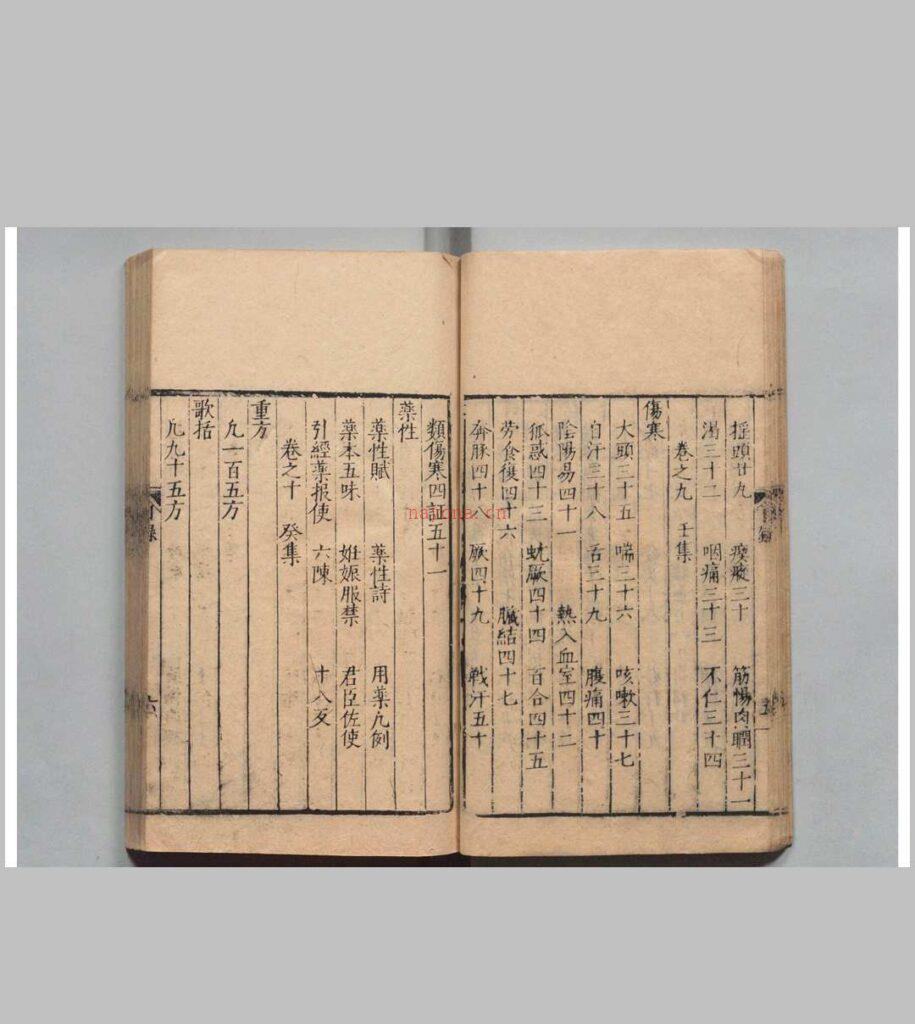 摇頭廿九 瘈瘲三十 筋惕肉瞤三十一
渴三十二 咽痛三十三 不仁三十四
卷之九 壬集
傷寒
大頭三十五 喘三十六 咳嗽三十七
自汗三十八 舌三十九 腹痛四十
陰陽易四十一 熱入血室四十二
狐惑四十三 蚘厥四十四 百合四十五
劳食復四十六 臓結四十七
奔豚四十八 厥四十九 戦汗五十
類傷寒四証五十一
藥性
藥性賦 藥性詩 用藥凢例
藥本五味 姙娠服禁 君臣佐使
引經藥报使 六陳 十八反
卷之十 癸集
重方
凢一百五方
歌括
凢九十五方
目錄 六
naiona.cn